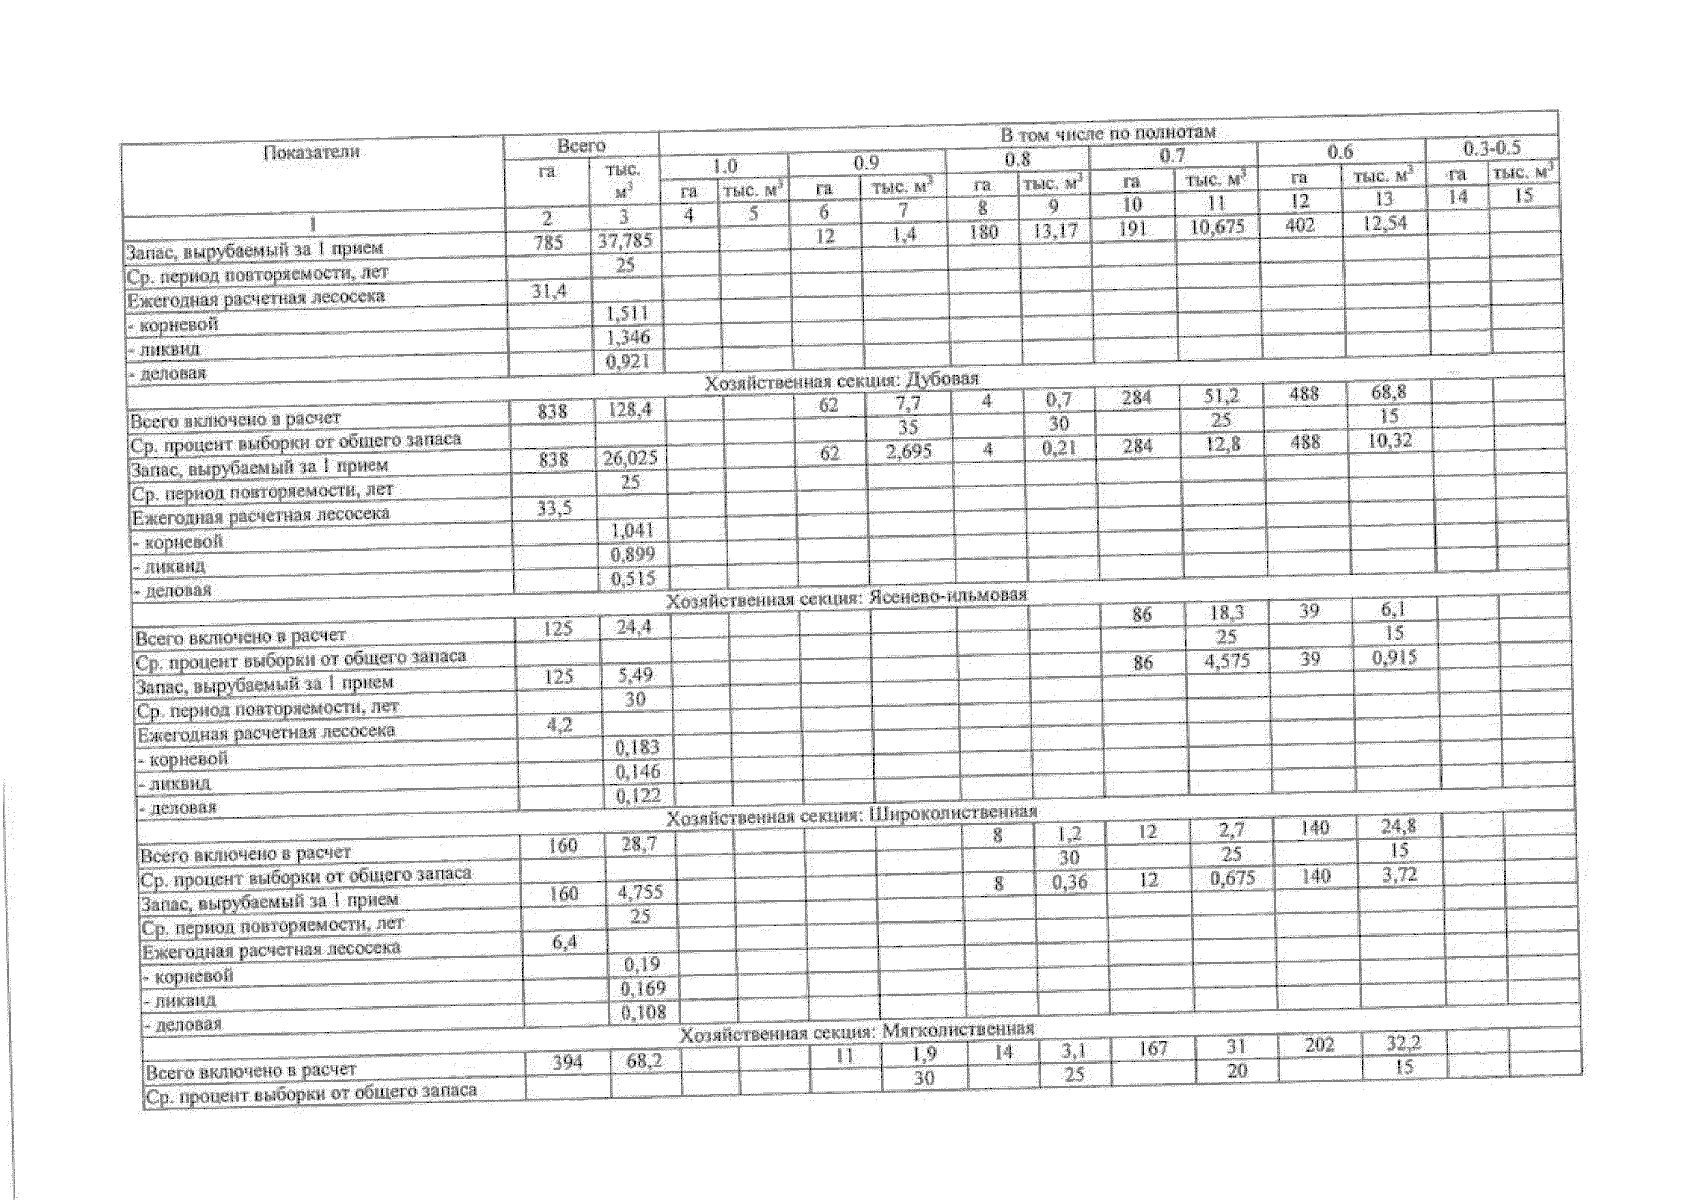 Показатели Всего В том числе по полнотам
га тыс. м³ 1.0 0.9 0.8 0.7 0.6 0.3-0.5
га тыс. м³ га тыс. м³ га тыс. м³ га тыс. м³ га тыс. м³ га тыс. м³
1 2 3 4 5 6 7 8 9 10 11 12 13 14 15
Запас, вырубаемый за 1 прием 785 37,785 12 1,4 180 13,17 191 10,675 402 12,54
Ср. период повторяемости, лет 25
Ежегодная расчетная лесосека 31,4
- корневой 1,511
- ликвид 1,346
- деловая 0,921
Хозяйственная секция: Дубовая
Всего включено в расчет 838 128,4 62 7,7 4 0,7 284 51,2 488 68,8
Ср. процент выборки от общего запаса 35 30 25 15
Запас, вырубаемый за 1 прием 838 26,025 62 2,695 4 0,21 284 12,8 488 10,32
Ср. период повторяемости, лет 25
Ежегодная расчетная лесосека 33,5
- корневой 1,041
- ликвид 0,899
- деловая 0,515
Хозяйственная секция: Ясенево-ильмовая
Всего включено в расчет 125 24,4 86 18,3 39 6,1
Ср. процент выборки от общего запаса 25 15
Запас, вырубаемый за 1 прием 125 5,49 86 4,575 39 0,915
Ср. период повторяемости, лет 30
Ежегодная расчетная лесосека 4,2
- корневой 0,183
- ликвид 0,146
- деловая 0,122
Хозяйственная секция: Широколиственная
Всего включено в расчет 160 28,7 8 1,2 12 2,7 140 24,8
Ср. процент выборки от общего запаса 30 25 15
Запас, вырубаемый за 1 прием 160 4,755 8 0,36 12 0,675 140 3,72
Ср. период повторяемости, лет 25
Ежегодная расчетная лесосека 6,4
- корневой 0,19
- ликвид 0,169
- деловая 0,108
Хозяйственная секция: Мягколиственная
Всего включено в расчет 394 68,2 11 1,9 14 3,1 167 31 202 32,2
Ср. процент выборки от общего запаса 30 25 20 15